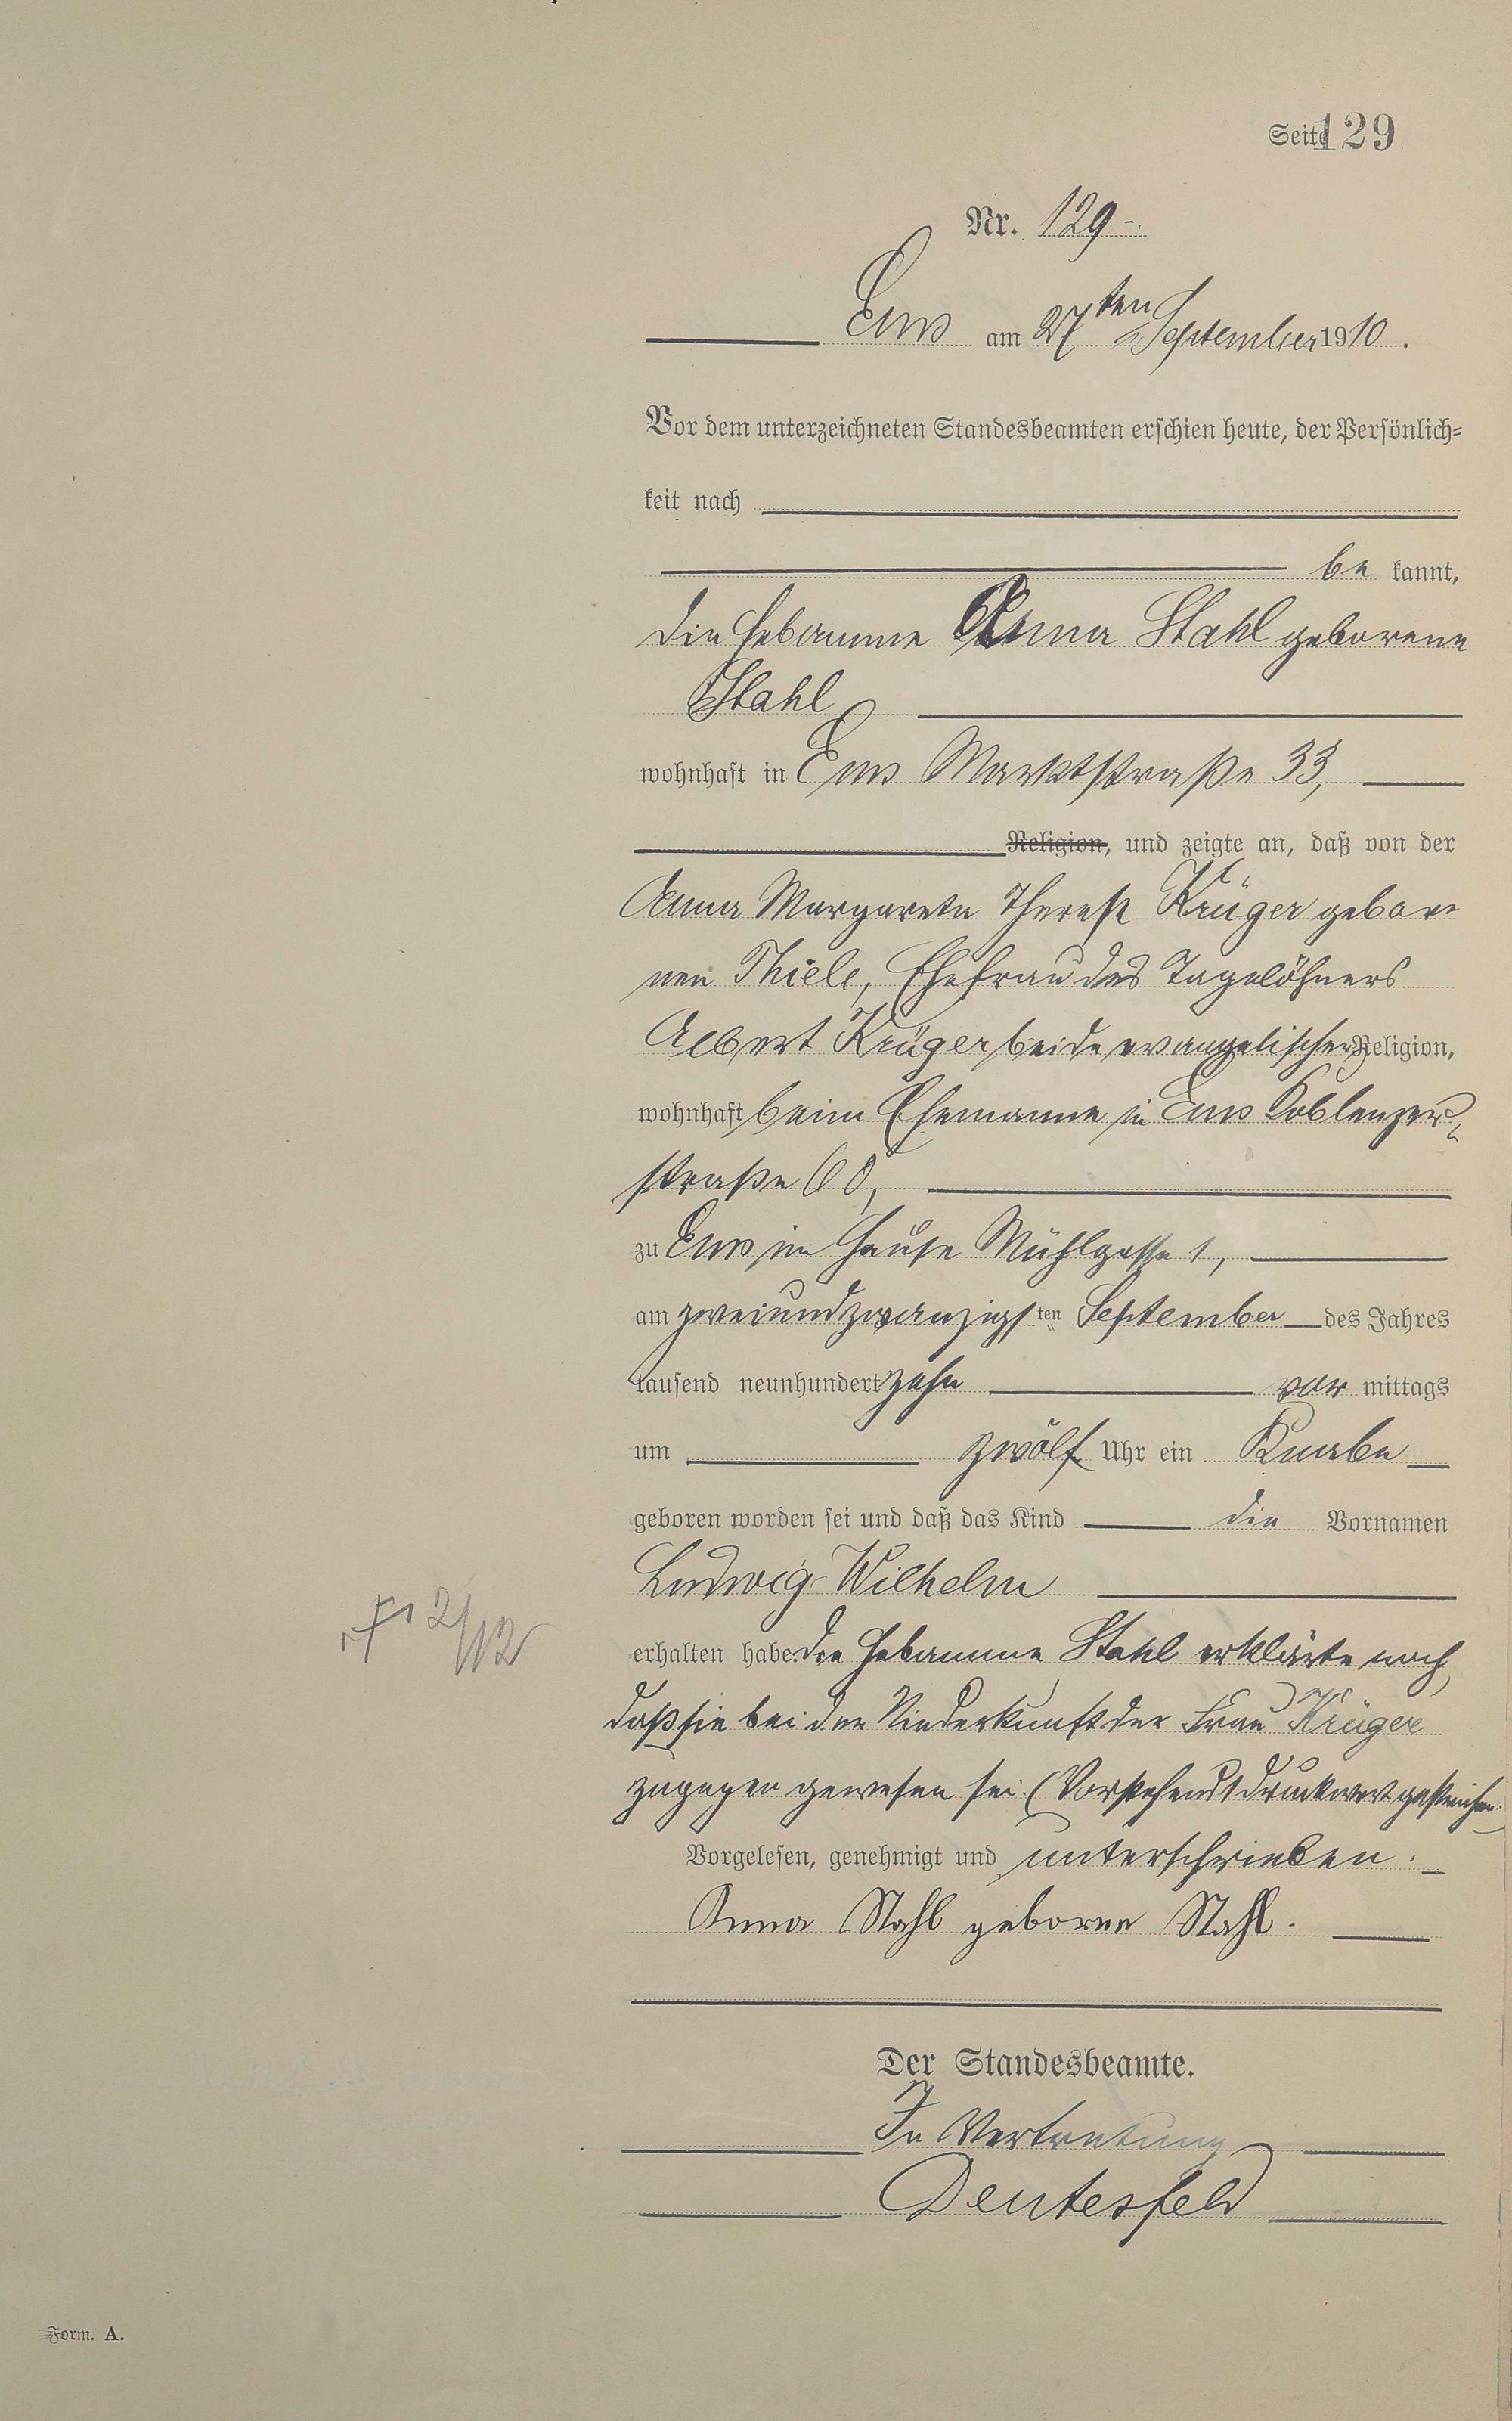 Seite 129
Nr. 129.
Ems am 27ten September 1910.
Vor dem unterzeichneten Standesbeamten erschien heute, der Persönlich=
keit nach
be kannt,
die Hebamme Anna Stahl geborene
Stahl
wohnhaft in Ems Marktstraße 33,
Religion, und zeigte an, daß von der
Anna Margarete Therese Krüger gebor=
nen Thiele, Ehefrau des Tagelöhners
Albert Krüger beide evangelischer Religion,
wohnhaft beim Ehemanne in Ems Koblenzer=
straße 60,
zu Ems im Hause Mühlgasse 1,
am zweiundzwanzigsten September des Jahres
tausend neunhundert zehn vor mittags
um zwölf Uhr ein Knabe
geboren worden sei und daß das Kind die Vornamen
Ludwig Wilhelm
erhalten habe. Die Hebamme Stahl erklärte noch,
daß sie bei der Niederkunft der Frau Krüger
zugegen gewesen sei. (Vorstehend 1 Druckwort gestrichen.)
Vorgelesen, genehmigt und unterschrieben.
Anna Stahl geborne Stahl.
Der Standesbeamte.
In Vertretung
Deutesfeld
2/12
Form. A.